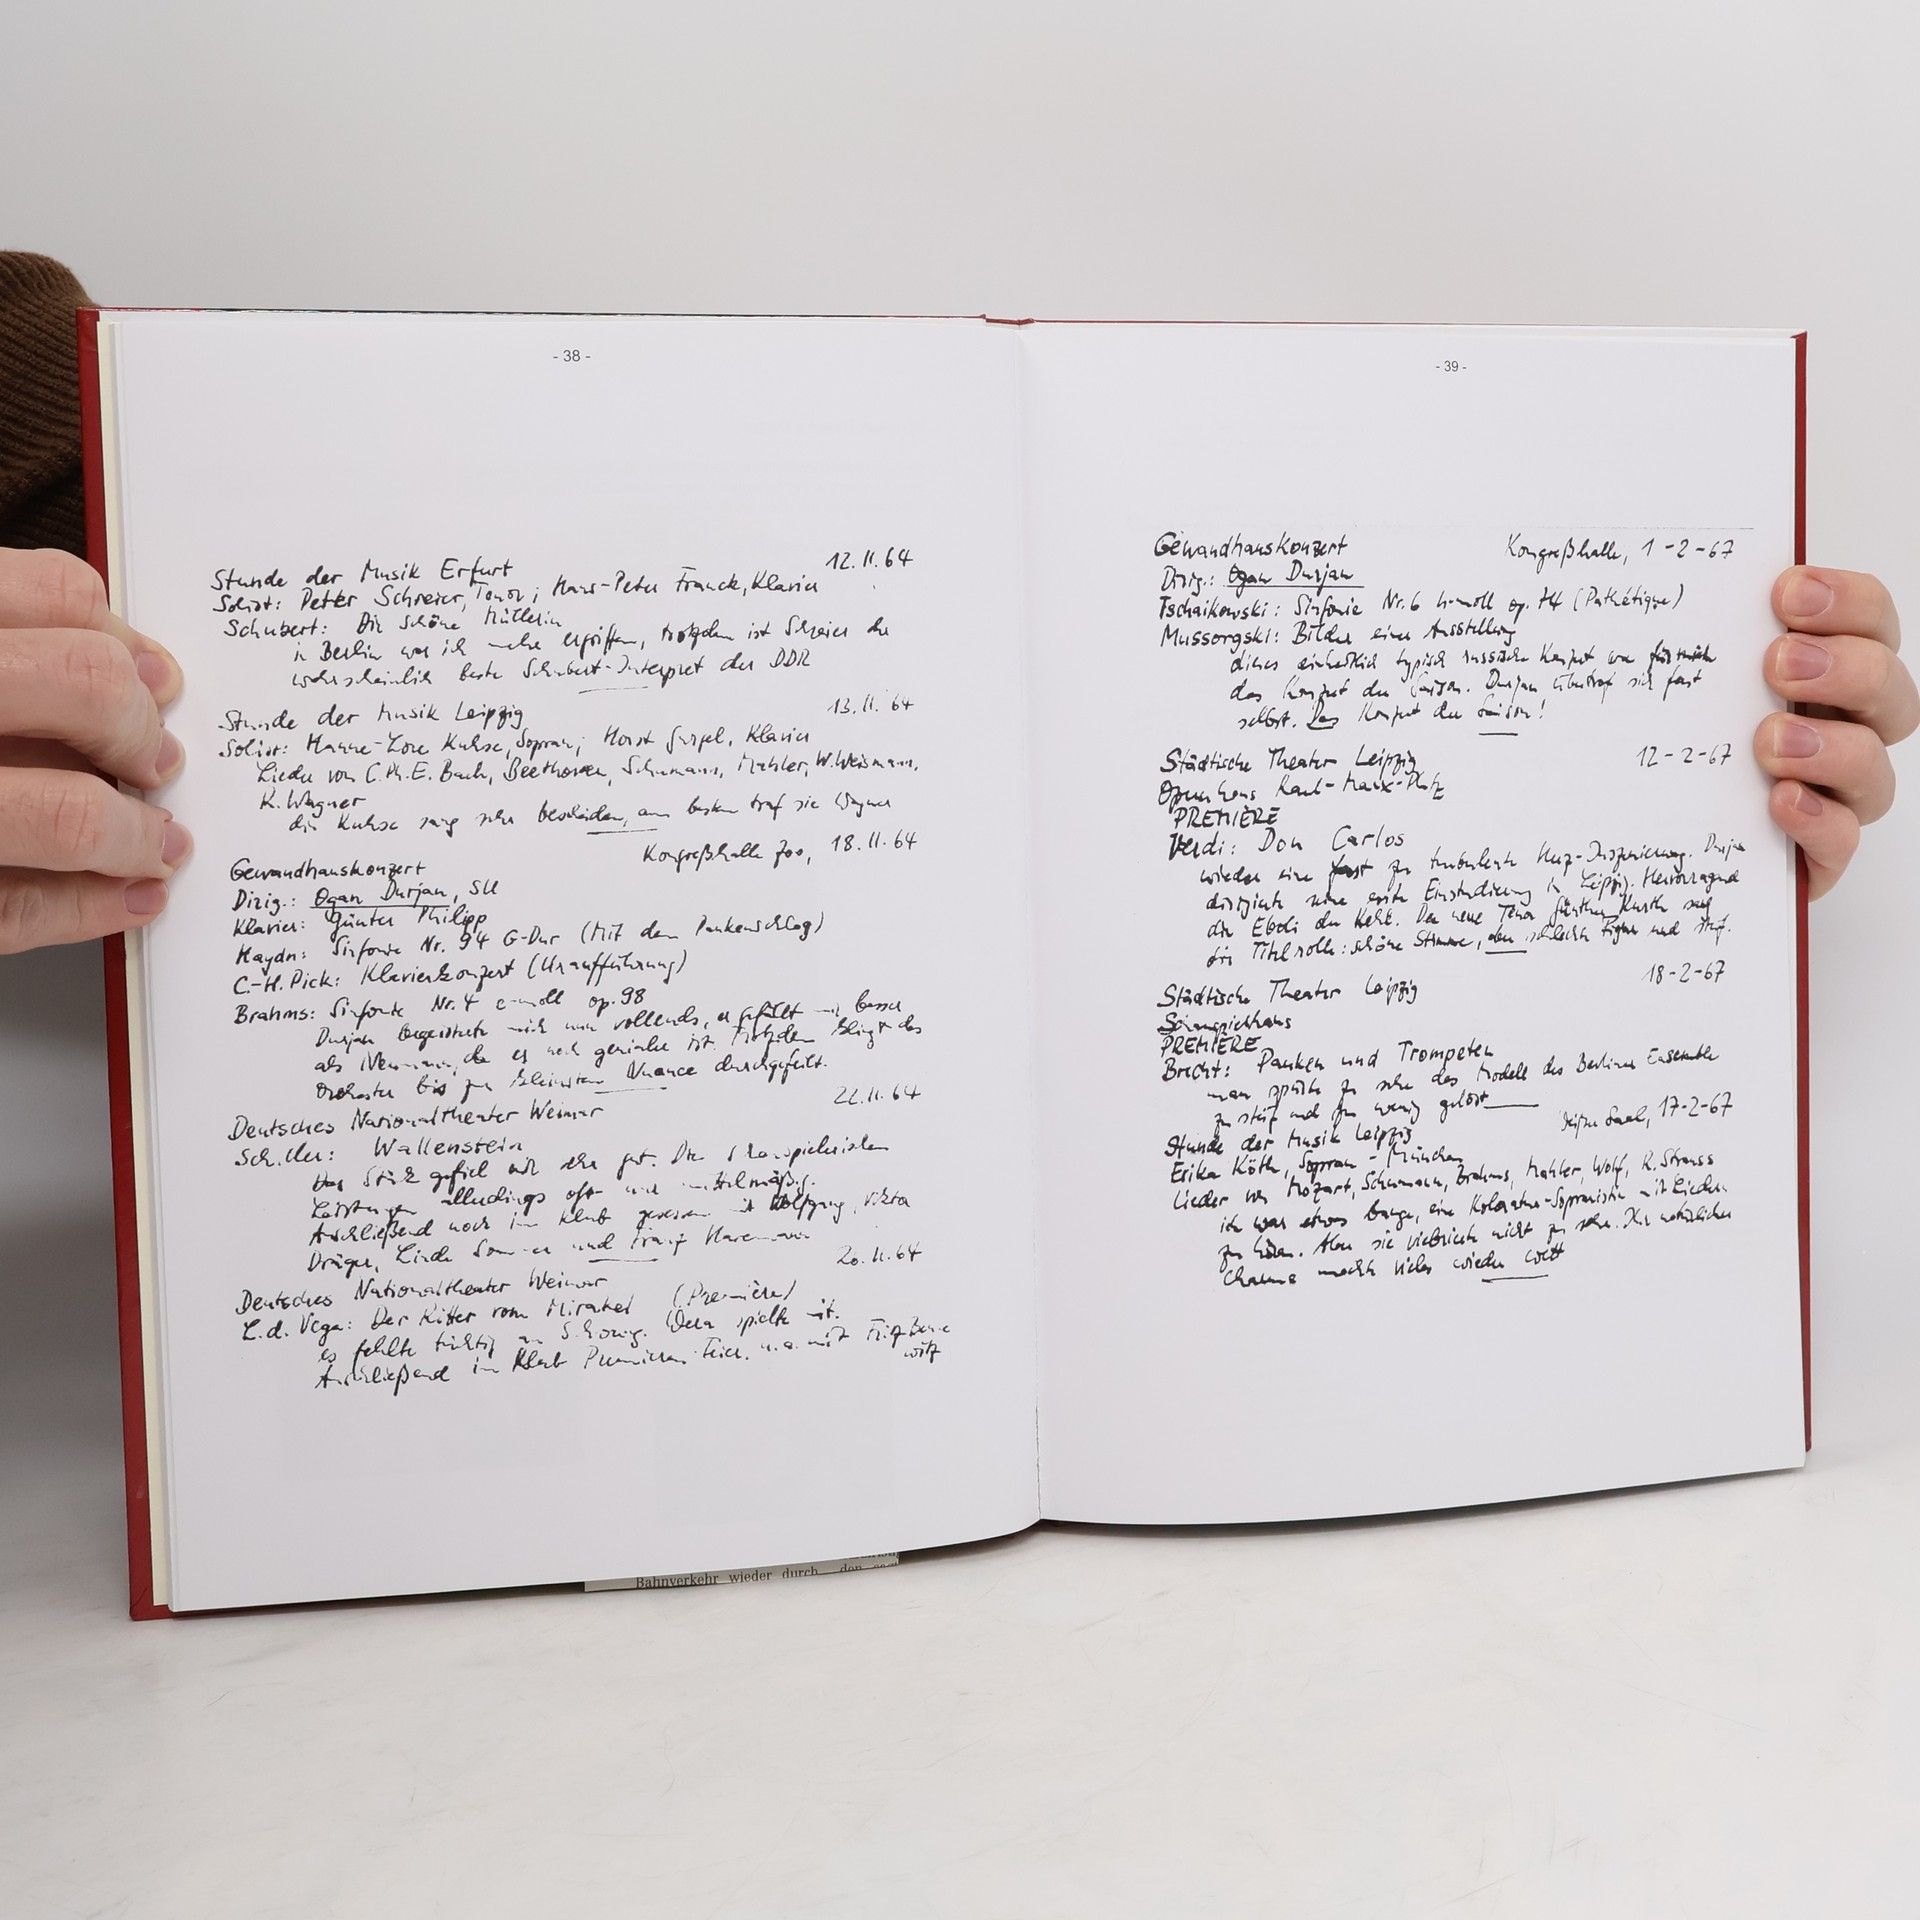 - 38 -
12.11.64
Stunde der Musik Erfurt
Solist: Peter Schreier, Tenor; Hans-Peter Franck, Klavier
Schubert: Die schöne Müllerin
in Berlin war ich mehr ergriffen, trotzdem ist Schreier der
wahrscheinlich beste Schubert-Interpret der DDR
13.11.64
Stunde der Musik Leipzig
Solist: Hanne-Lore Kuhse, Sopran; Horst Klavier
Lieder von C.Ph.E. Bach, Beethoven, Schumann, Mahler, W. Weismann,
R. Wagner
die Kuhse sang sehr bescheiden, am besten traf sie Wagner
Kongreßhalle Zoo, 18.11.64
Gewandhauskonzert
Dirig.: Ogan Durjan, SU
Klavier: Günter Philipp
Haydn: Sinfonie Nr. 94 G-Dur (Mit dem Paukenschlag)
C.-H. Pick: Klavierkonzert (Uraufführung)
Brahms: Sinfonie Nr. 4 e-moll op. 98
Durjan begeisterte mich nun vollends, er gefällt mir besser
als Neumann, da er noch genialer ist. Trotzdem klingt das
Orchester bis zur kleinsten Nuance durchgefeilt.
22.11.64
Deutsches Nationaltheater Weimar
Schiller: Wallenstein
Das Stück gefiel mir sehr gut. Die schauspielerischen
Leistungen allerdings oft nur mittelmäßig.
Anschließend noch im Klub gesessen mit Wolfgang,
Dräger, Linde Sommer und Franz
20.11.64
Deutsches Nationaltheater Weimar
L.d. Vega: Der Ritter vom Mirakel (Première)
es fehlte tüchtig an Schwung. Vera spielte mit.
Anschließend im Klub Premieren-Feier. u.a. mit Fritz Benne-
witz
- 39 -
Gewandhauskonzert
Kongreßhalle, 1-2-67
Dirig.: Ogan Durjan
Tschaikowski: Sinfonie Nr. 6 h-moll op. 74 (Pathétique)
Mussorgski: Bilder einer Ausstellung
dieses einheitlich typisch russische Konzert war für mich
das Konzert der Saison. Durjan übertraf sich fast
selbst. Das Konzert der Saison!
Städtische Theater Leipzig
12-2-67
Opernhaus Karl-Marx-Platz
PREMIÈRE
Verdi: Don Carlos
wieder eine fast zu turbulente Herz-Inszenierung. Durjan
dirigierte seine erste Einstudierung in Leipzig. Hervorragend
die Eboli der Kehl. Der neue Tenor Günther Kurth sang
die Titelrolle: schöne Stimme, aber schlechte Figur und steif.
18-2-67
Städtische Theater Leipzig
Schauspielhaus
PREMIÈRE
Brecht: Pauken und Trompeten
man spürte zu sehr das Modell des Berliner Ensemble
zu steif und zu wenig gelöst
Saal, 17-2-67
Stunde der Musik Leipzig
Erika Köth, Sopran - München
Lieder von Mozart, Schumann, Brahms, Mahler, Wolf, R. Strauss
ich war etwas bange, eine Koloratur-Sopranistin mit Liedern
zu hören. Aber sie vibrierte nicht zu sehr. Ihr natürlicher
Charme machte vieles wieder wett
Bahnverkehr wieder durch den